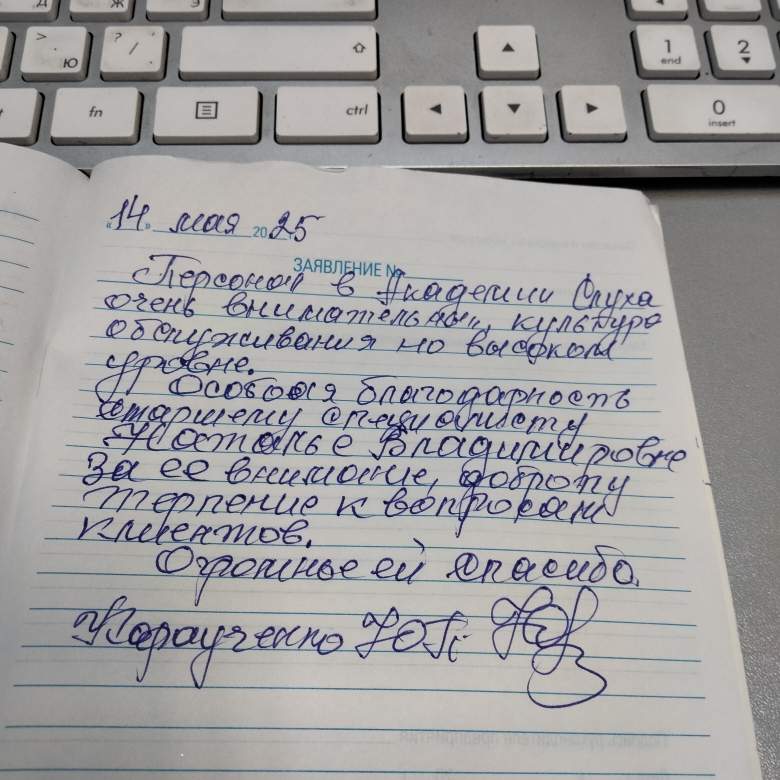 Д Ж Э
> . Ю
? / .
1 end
2
fn
ctrl
0 insert
"14" мая 2025
ЗАЯВЛЕНИЕ №
Персонал в Академии Слуха
очень внимательный, культура
обслуживания на высоком
уровне.
Особая благодарность
старшему специалисту
Наталье Владимировне
за ее внимание, доброту
терпение к вопросам
клиентов.
Огромное ей спасибо.
Ю.Г.